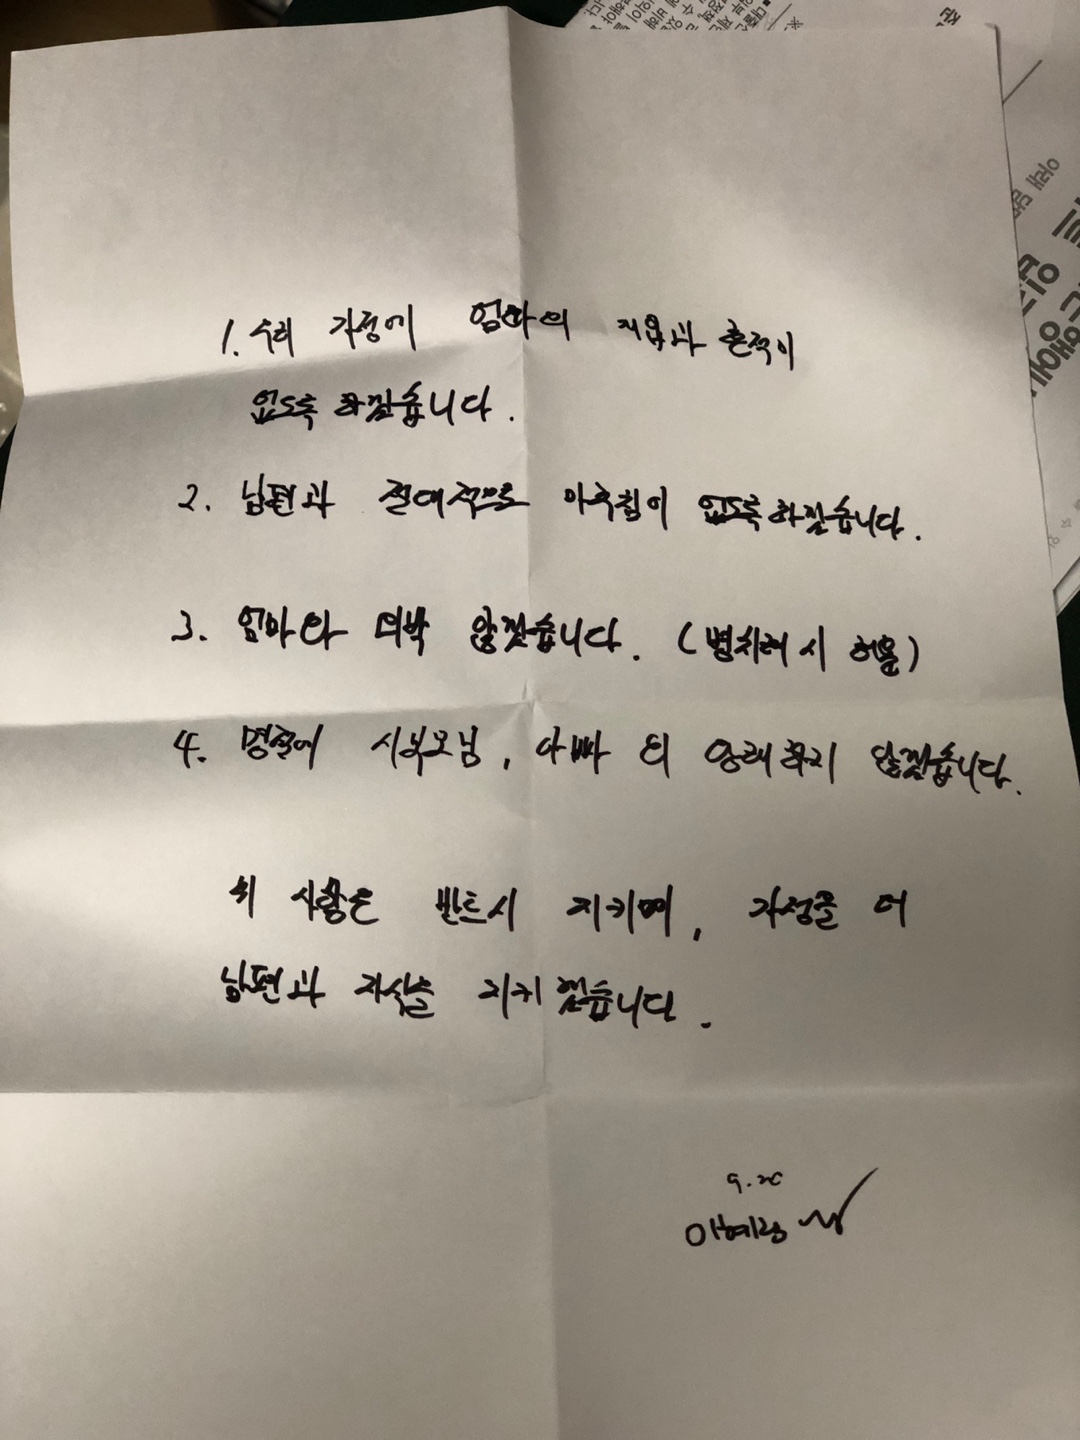 1. 우리 가정에 엄마의 개입과 흔적이
없도록 하겠습니다.
2. 남편과 절대적으로 마주침이 없도록 하겠습니다.
3. 엄마와 외박 않겠습니다. (병치레 시 허용)
4. 명절에 시부모님, 아빠 왕래하지 않겠습니다.
위 사항은 반드시 지키며, 가정을
남편과 자식을 지키겠습니다.
9.20
이혜랑